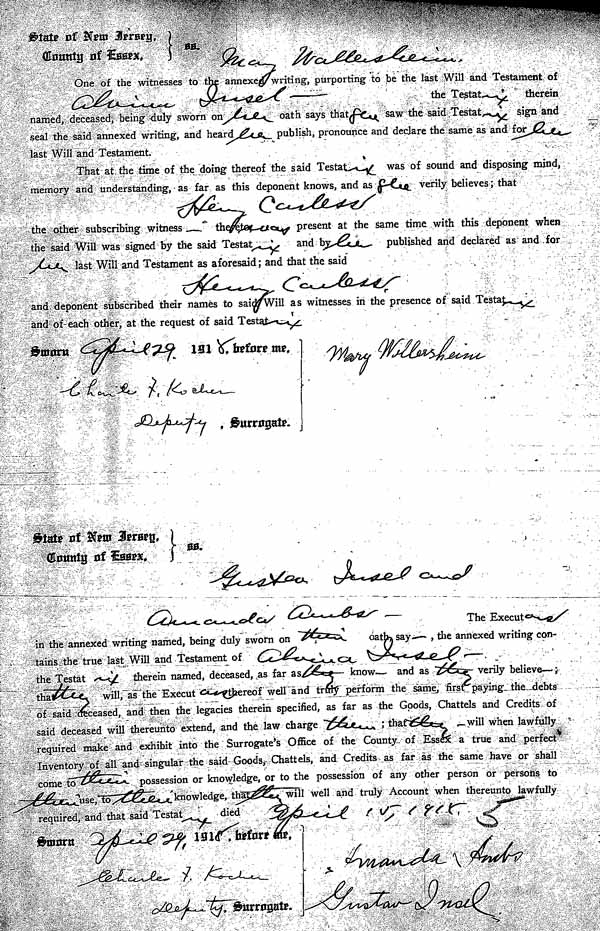 State of New Jersey,
County of Essex, } ss.
Mary Wallersheim.
One of the witnesses to the annexed writing, purporting to be the last Will and Testament of
Alvina Insel — the Testatrix therein
named, deceased, being duly sworn on her oath says that she saw the said Testatrix sign and
seal the said annexed writing, and heard her publish, pronounce and declare the same as and for her
last Will and Testament.
That at the time of the doing thereof the said Testatrix was of sound and disposing mind,
memory and understanding, as far as this deponent knows, and as she verily believes; that
Henry Carless
the other subscribing witness — was present at the same time with this deponent when
the said Will was signed by the said Testatrix and by her published and declared as and for
her last Will and Testament as aforesaid; and that the said
Henry Carless.
and deponent subscribed their names to said Will as witnesses in the presence of said Testatrix
and of each other, at the request of said Testatrix
Sworn April 29. 1918, before me, Mary Willersheim
Charles F. Kocher
Deputy, Surrogate.
State of New Jersey,
County of Essex, } ss.
Gustav Insel and
Amanda Ambs — The Executors
in the annexed writing named, being duly sworn on their oath, say —, the annexed writing con-
tains the true last Will and Testament of Alvina Insel —
the Testatrix therein named, deceased, as far as they know — and as they verily believe —;
that they will, as the Executors thereof well and truly perform the same, first paying the debts
of said deceased, and then the legacies therein specified, as far as the Goods, Chattels and Credits of
said deceased will thereunto extend, and the law charge them; that they — will when lawfully
required make and exhibit into the Surrogate's Office of the County of Essex a true and perfect
Inventory of all and singular the said Goods, Chattels, and Credits as far as the same have or shall
come to their possession or knowledge, or to the possession of any other person or persons to
their use, to their knowledge, that they will well and truly Account when thereunto lawfully
required, and that said Testatrix died April 15, 1918. 5
Sworn April 29, 1918, before me, Amanda Ambs
Charles F. Kocher
Deputy, Surrogate. Gustav Insel